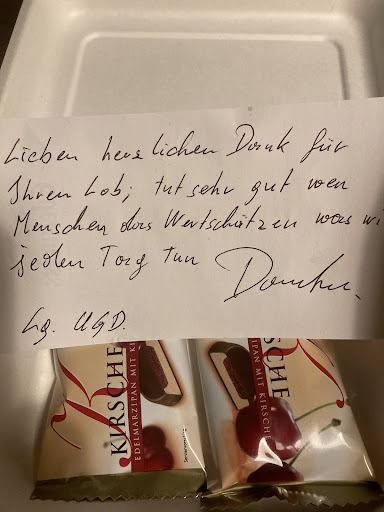 Lieben herzlichen Dank für
Ihren Lob; tut sehr gut wen
Menschen das Wertschätzen was wi
jeden Tag tun
Danke.
Lg. UGD.
KIRSCHE
EDELMARZIPAN MIT KI
KIRSCHE
EDELMARZIPAN MIT KIRSCHE